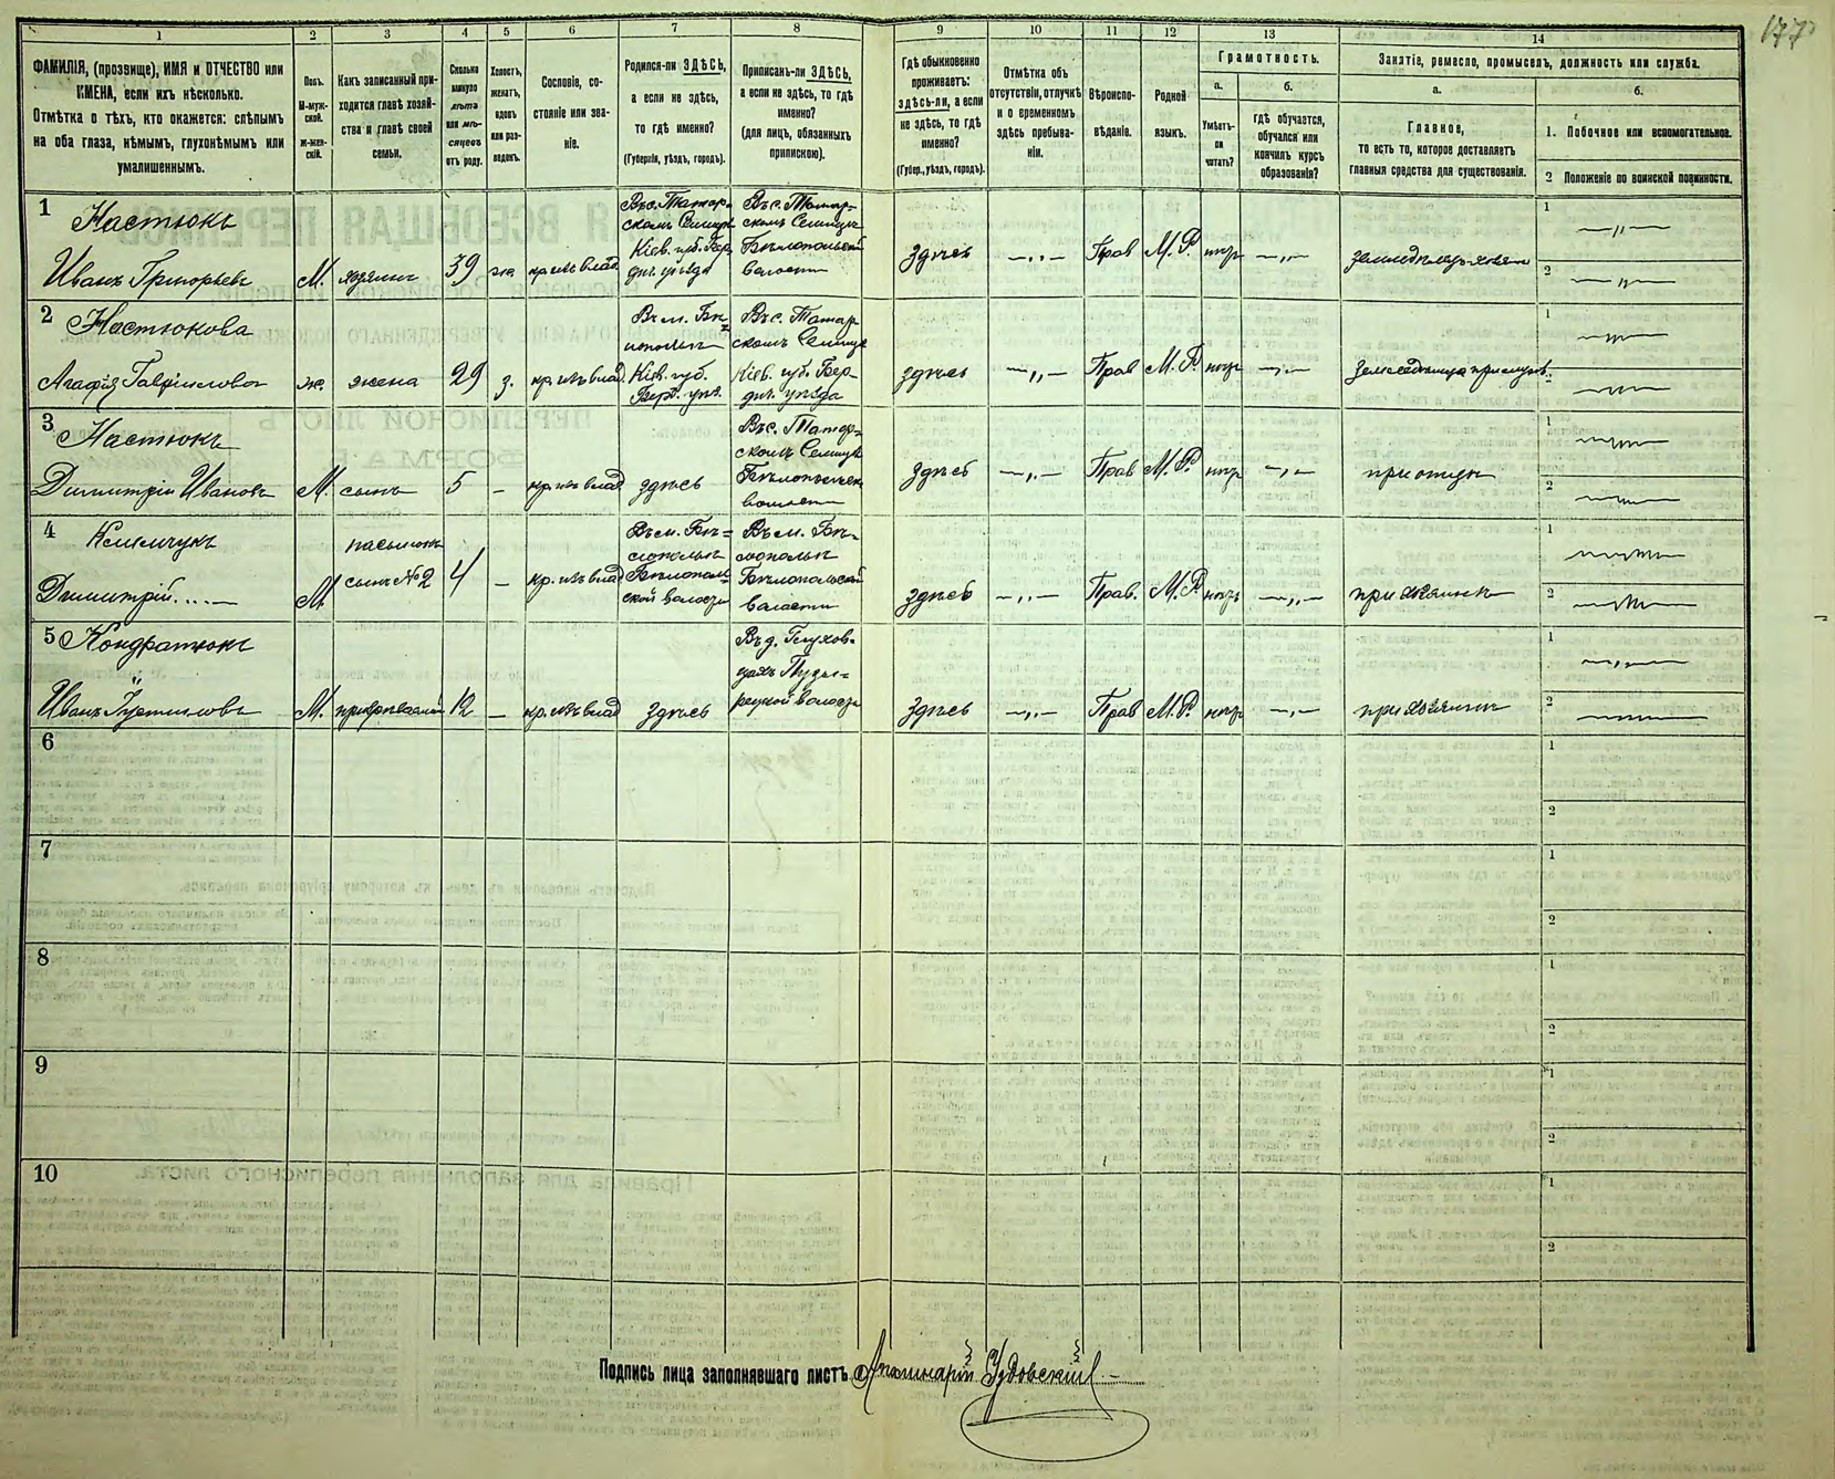 177
1 2 3 4 5 6 7 8 9 10 11 12 13 14
ФАМИЛІЯ, (прозвище), ИМЯ и ОТЧЕСТВО или
ИМЕНА, если ихъ нѣсколько.
Отмѣтка о тѣхъ, кто окажется: слѣпымъ
на оба глаза, нѣмымъ, глухонѣмымъ или
умалишеннымъ.
Полъ.
М-муж-
ской.
ж-жен-
скій.
Какъ записанный при-
ходится главѣ хозяй-
ства и главѣ своей
семьи.
Сколько
минуло
лѣтъ
или мѣ-
сяцевъ
отъ роду.
Холостъ,
женатъ,
вдовъ
или раз-
веденъ.
Сословіе, со-
стояніе или зва-
ніе.
Родился-ли ЗДѢСЬ,
а если не здѣсь,
то гдѣ именно?
(Губернія, уѣздъ, городъ).
Приписанъ-ли ЗДѢСЬ,
а если не здѣсь, то гдѣ
именно?
(для лицъ, обязанныхъ
припискою).
Гдѣ обыкновенно
проживаетъ:
здѣсь-ли, а если
не здѣсь, то гдѣ
именно?
(Губер., уѣздъ, городъ).
Отмѣтка объ
отсутствіи, отлучкѣ
и о временномъ
здѣсь пребыва-
ніи.
Вѣроиспо-
вѣданіе.
Родной
языкъ.
Грамотность.
а.
Умѣетъ-
ли
читать?
б.
гдѣ обучается,
обучался или
кончилъ курсъ
образованія?
Занятіе, ремесло, промыселъ, должность или служба.
а.
Главное,
то есть то, которое доставляетъ
главныя средства для существованія.
б.
1. Побочное или вспомогательное.
2 Положеніе по воинской повинности.
1 Настюкъ
Иванъ Григорьевъ
М. хозяинъ 39 же кр. изъ влад.
Въ с. Татар-
скомъ Селищѣ
Кіев. губ. Бер-
дич. уѣзда
Въ с. Татар-
скомъ Селищѣ
Бѣлопольской
волости
здѣсь —„— Прав М. Р. негр —„— земледѣлецъ-хозяин
1 —„—
2 —„—
2 Настюкова
Агафія Гавріилова
ж. жена 29 з. кр. изъ влад.
Въ м. Бѣ
лопольѣ
Кіев. губ.
Берд. уѣз.
Въ с. Татар
скомъ Селищѣ
Кіев. губ. Бер-
дич. уѣзда
здѣсь —„— Прав М. Р. негр —„—
1
2
3 Настюкъ
Димитрій Ивановъ
М. сынъ 5 – кр. изъ влад здѣсь
Въ с. Татар-
скомъ Селищѣ
Бѣлопольской
волости
здѣсь —„— Прав М. Р. негр —„— при отцѣ
1
2
4 Климчукъ
Димитрій....—
М.
пасынокъ
сынъ №2
4 – кр. изъ влад
Въ м. Бѣ=
лопольѣ
Бѣлополь
ской волости
Въ м. Бѣ-
лопольѣ
Бѣлопольской
волости
здѣсь —„— Прав. М. Р негр —„— при хозяинѣ
1
2
5 Кондратюкъ
Иванъ Густиновъ
М. 12 – кр. изъ влад здѣсь
Въ д. Глухов-
цахъ Пузы-
рецкой волости
здѣсь —„— Прав М. Р. негр —„— при хозяинѣ
1
2
6
1
2
7
1
2
8
1
2
9
1
2
10
1
2
Подпись лица заполнявшаго листъ Аполинарій Удовскій